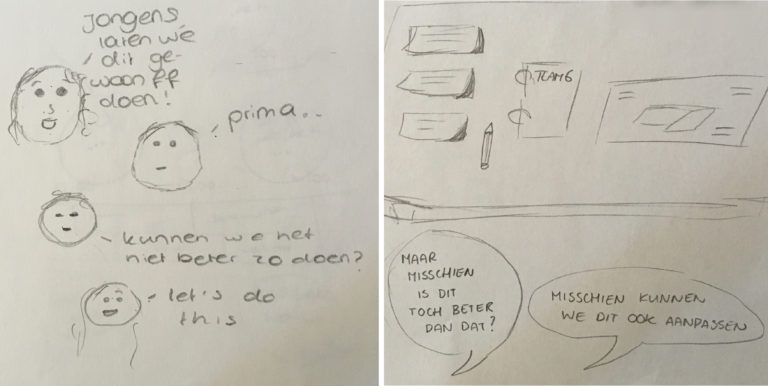 Jongens,
laten we
dit ge-
woon ff
doen!
prima..
kunnen we het
niet beter zo doen?
let's do
this
TEAM 6
MAAR
MISSCHIEN
IS DIT
TOCH BETER
DAN DAT?
MISSCHIEN KUNNEN
WE DIT OOK AANPASSEN